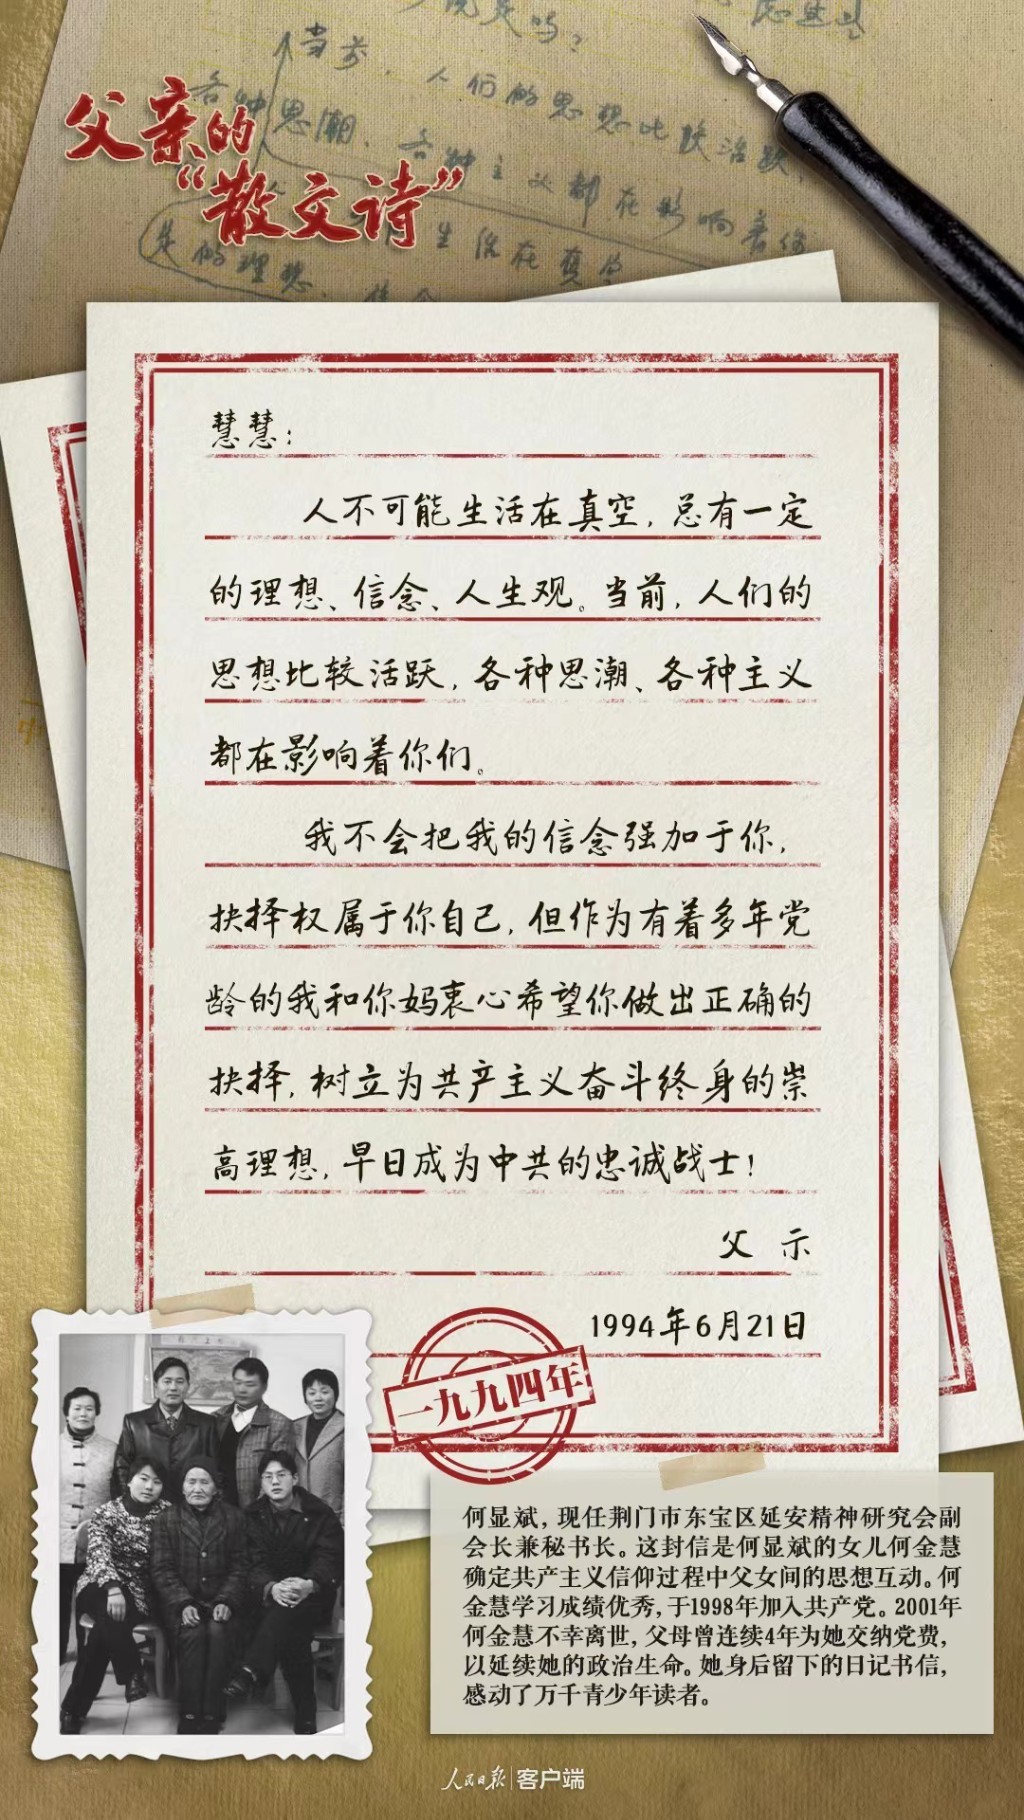 当前，人们的思想比较活跃，
各种思潮、各种主义都在影响着你
是的理想、信念
生活在真空
父亲的
“散文诗”
慧慧：
人不可能生活在真空，总有一定
的理想、信念、人生观。当前，人们的
思想比较活跃，各种思潮、各种主义
都在影响着你们。
我不会把我的信念强加于你，
抉择权属于你自己，但作为有着多年党
龄的我和你妈衷心希望你做出正确的
抉择，树立为共产主义奋斗终身的崇
高理想，早日成为中共的忠诚战士！
父 示
1994年6月21日
一九九四年
何显斌，现任荆门市东宝区延安精神研究会副
会长兼秘书长。这封信是何显斌的女儿何金慧
确定共产主义信仰过程中父女间的思想互动。何
金慧学习成绩优秀，于1998年加入共产党。2001年
何金慧不幸离世，父母曾连续4年为她交纳党费，
以延续她的政治生命。她身后留下的日记书信，
感动了万千青少年读者。
人民日报|客户端